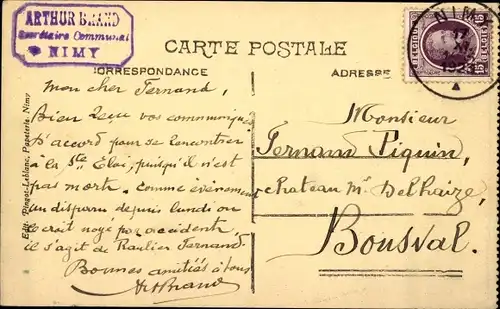 ARTHUR BRAND
Secrétaire Communal
NIMY
NIMY
BELGIQUE
15
CARTE POSTALE
CORRESPONDANCE
ADRESSE
Mon cher Fernand,
Bien reçu vos communiqués
d'accord pour se rencontrer
à la Ste Eloi, puisqu'il n'est
pas mort. Comme évènement
un disparu depuis lundi on
le croit noyé par accident
il s'agit de Raulier Fernand.
Bonnes amitiés à tous
Monsieur
Fernand Piquin,
chateau Mr Delhaize,
Bousval.
Edit. Pinget-Leblanc, Papeterie, Nimy